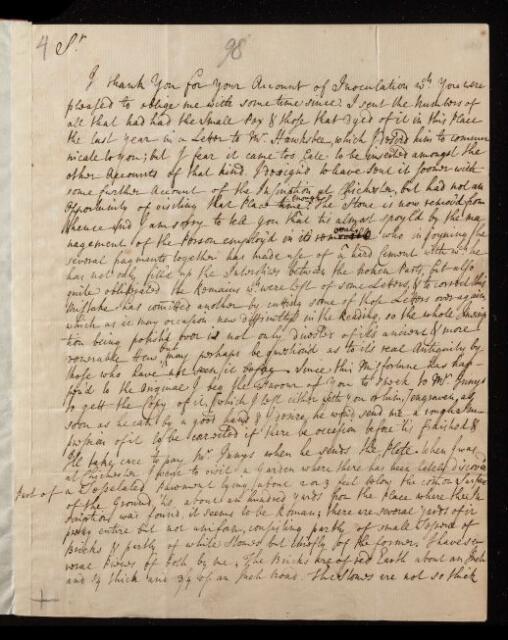 4 Sr 98
I thank You for Your Account of Inoculation wch You were
pleased to oblige me with some time since. I sent the Numbers of
all that had had the Small Pox & those that dyed of it in this Place
the last year in a Letter to Mr. Hawksbee, which I desired him to commu
nicate to You; but I fear it came too late to be inserted amongst the
other Accounts of that kind. I design'd to have sent it sooner with
some further Account of the Inscription at Chichester, but had not an
Opportunity of visiting that Place enough. The Stone is now remov'd from
thence and I am sorry to tell you that tis almost spoyl'd by the ma
nagement of the Person employ'd in it, who in joyning the
several fragments together has made use of a hard Cement with wch he
has not only fill'd up the Interstices between the broken Parts, but also
quite obliterated the Remains wch were left of some Letters, & to correct this
Mistake has comitted another by cutting some of those Letters over again,
which as it may occasion new difficultys in the Reading, so the whole Inscrip
tion being polish'd over is not only divested of its ancient & more
venerable hew, but may perhaps be question'd as to its real Antiquity by
those who have not seen it before. Since this Misfortune has hap
pen'd to the Original I beg the favour of You to speak to Mr. Innys
to gett the Copy of it, (which I left either with you or him,) engraven, as
soon as he can, by a good hand & I desire he would send me a rough Im
pression of it to be corrected if there be occasion before tis finished &
I'll take care to pay Mr Innys when he sends the Plate. When I was
at Chichester I went to visit a Garden where there has been lately discover'd
part of a Tesselated Pavement lying about 2 or 3 feet below the common Surface
of the Ground, tis about an hundred yards from the Place where the In
scription was found, it seems to be Roman; there are several yards of it
pretty entire but not uniform, consisting partly of small Squares of
Bricks & partly of white Stones but chiefly of the former. I have se
veral Pieces of both by me. The Bricks are of red Earth about an Inch
and 1/4 thick and 3/4 of an Inch broad. The Stones are not so thick